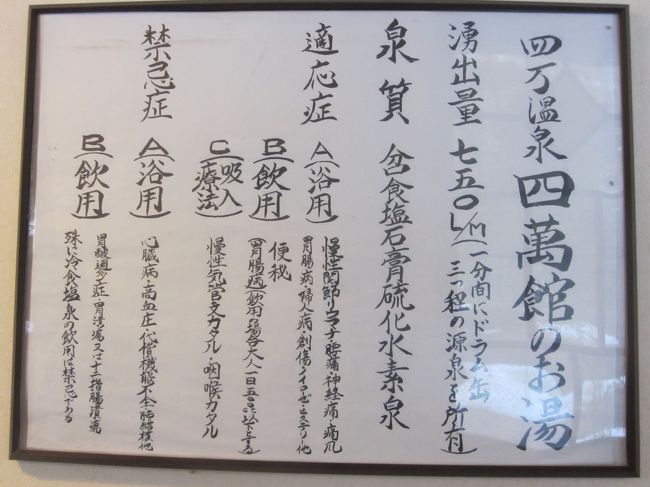 四万温泉 四萬館のお湯
湧出量 七五〇L/m(一分間にドラム缶
三つ程の源泉を所有)
泉質 含食塩石膏硫化水素泉
適応症 A(浴用) 慢性関節リウマチ・腰痛・神経痛・痛風
胃腸病・婦人病・創傷・ノイローゼ・ヒステリー他
B(飲用) 便秘
(胃腸病)(飲用の場合大人一日五〇〇以下とする)
C(吸入療法) 慢性気管支カタル・咽喉カタル
禁忌症 A(浴用) 心臓病・高血圧・代償機能不全・肺結核他
B(飲用) 胃酸過多症・胃潰瘍又は十二指腸潰瘍
殊に冷食塩泉の飲用は禁忌である